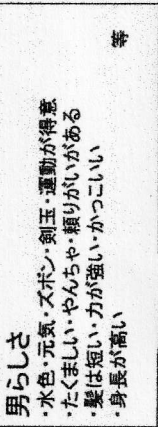 男らしさ
・水色・元気・ズボン・剣玉・運動が得意
・たくましい・やんちゃ・頼りがいがある
・髪は短い・力が強い・かっこいい
・身長が高い 等